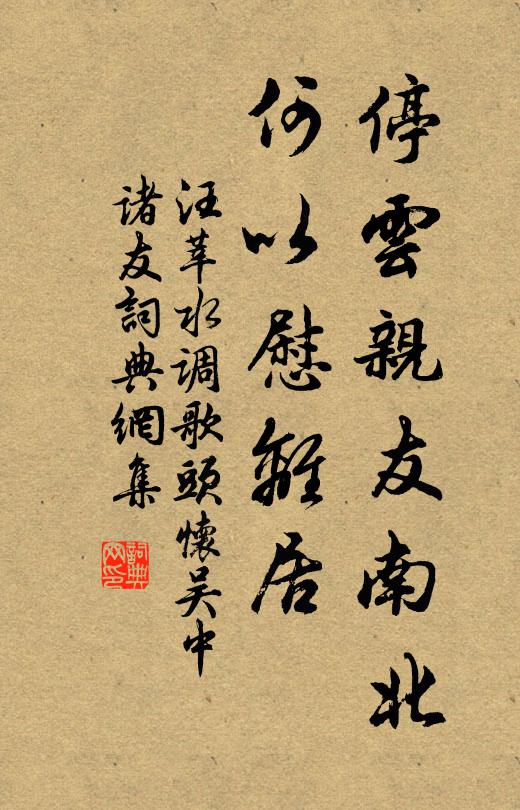 停雲親友南北
何以慰離居
汪莘水调歌頭懷吴中
诸友詞典網集
詞典网印